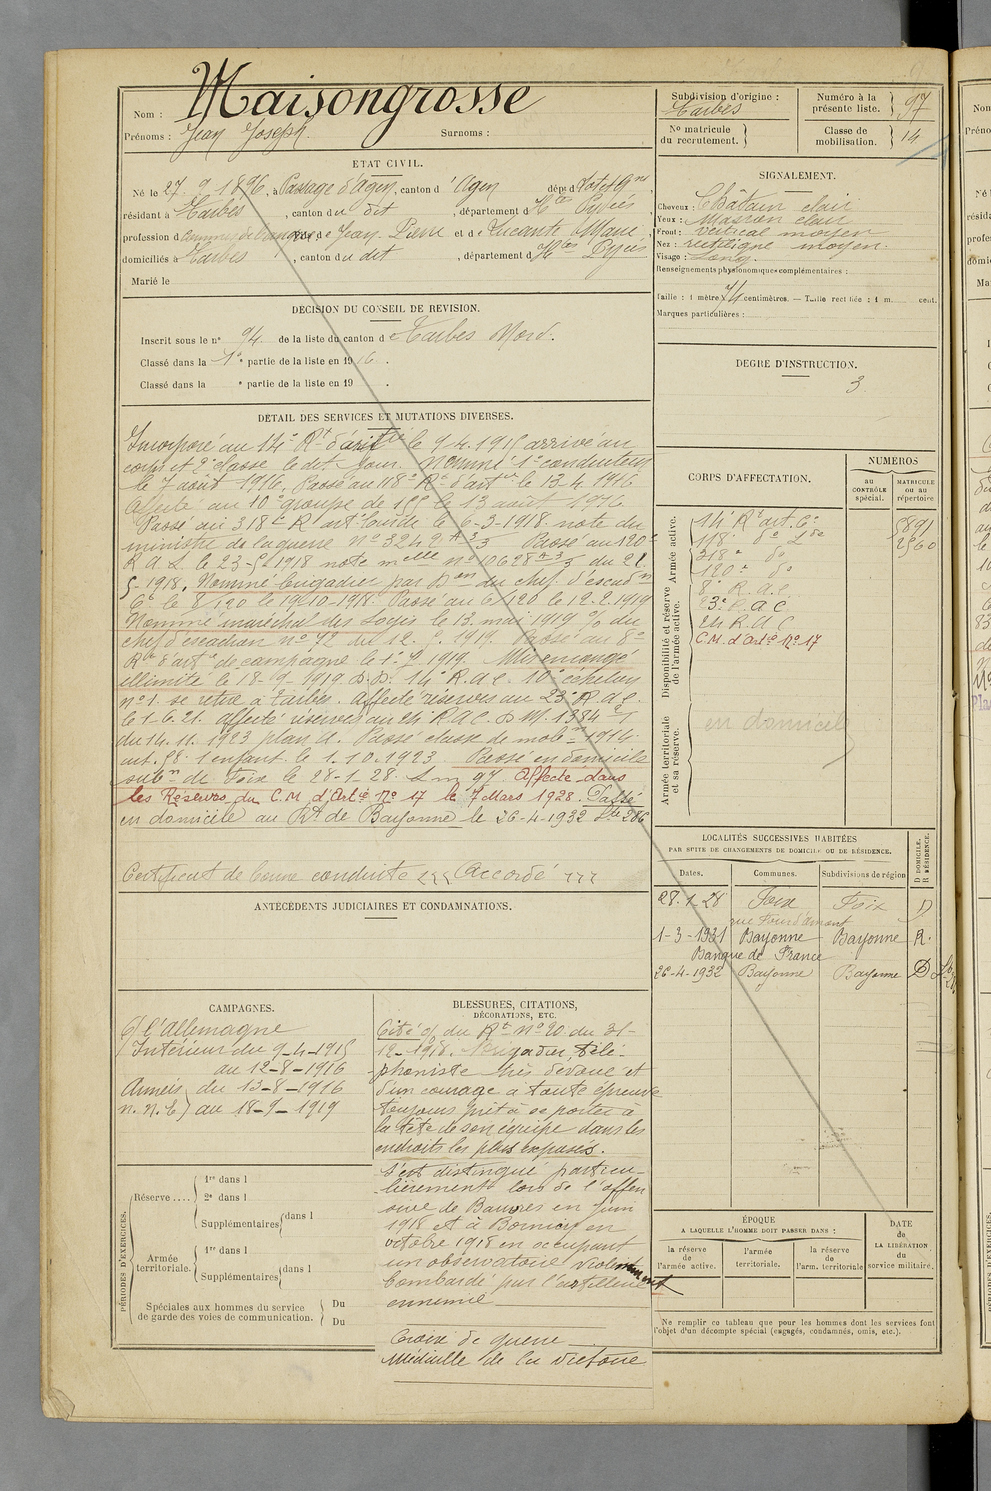 Nom : Maisongrosse
Prénoms : Jean Joseph. Surnoms :
ETAT CIVIL.
Né le 27. 9. 1896, à Passage d'Agen, canton d'Agen, dépt d Lot et Gne,
résidant à Tarbes, canton du dit, département d Htes Pyrées
profession d de banque, fils de Jean Pierre et de Lucante Marie,
domiciliés à Tarbes, canton du dit, département d Htes Pyrées
Marié le
DÉCISION DU CONSEIL DE REVISION.
Inscrit sous le n° 94 de la liste du canton de Tarbes Nord.
Classé dans la 1e partie de la liste en 1916.
Classé dans la e partie de la liste en 19 .
DÉTAIL DES SERVICES ET MUTATIONS DIVERSES.
Incorporé au 14e Rt d'artie le 9.4.1915 arrivé au
corps et 2e classe le dit jour. Nommé 1e conducteur
le 7 août 1916. Passé au 118e Rt d'artie le 13.4.1916
Affecté au 10e groupe de 155 le 13 août 1916
Passé au 318e R. art. lourde le 6-3-1918. note du
ministre de la guerre N° 3242 A 3/3 Passé au 120e
R.A.L. le 23-5-1918 note melle n° 10628 A 3/3 du 21.
5-1918. Nommé brigadier par Don du chef d'escadn
C. le 8/120 le 19-10-1918. Passé au 6/120 le 12.2.1919
Nommé maréchal des Logis le 13. mai 1919 o/o du
chef d'escadron n° 72 du 12. 5. 1919. Passé au 8e
Rt d'artie de campagne le 1er. 7. 1919. Mis en congé
illimité le 18-9-1919 D.D. 14e R.a.c. 10e échelon
n° 1. se retire à Tarbes. Affecté réserves au 23e R.a.c.
le 1-6.21. affecté réserves au 24 R.A.C. D.M. 1384 2/1
du 14.11.1923 plan A. Passé classe de mobon 1914.
art. 58. 1 enfant. le 1.10.1923. Passé en domicile
subon de Foix le 28-1-28. L m 97 Affecté dans
les Réserves du C.M. d'Artie No 17 le 7 Mars 1928. Passé
en domicile au Rt de Bayonne le 26-4-1932 Lte 286
Certificat de bonne conduite Accordé
ANTÉCÉDENTS JUDICIAIRES ET CONDAMNATIONS.
CAMPAGNES.
C/ l'Allemagne
Intérieur du 9-4-1915
au 12-8-1916
Armées du 13-8-1916
n. n. E) au 18-9-1919
BLESSURES, CITATIONS,
DÉCORATIONS, ETC.
Cité o/ du Rt N° 20 du 31-
12-1918. Brigadier télé-
phoniste très dévoué et
d'un courage à toute épreuve
toujours prêt à se porter à
la tête de son équipe dans les
endroits les plus exposés.
S'est distingué particu-
lièrement lors de l'offen
sive de en Juin
1918 et à en
octobre 1918 en occupant
un observatoire violemment
bombardé par l'artillerie
ennemie
Croix de guerre
Médaille de la victoire
PÉRIODES D'EXERCICES.
Réserve .... 1re dans l
2e dans l
Supplémentaires dans l
Armée territoriale. 1re dans l
Supplémentaires dans l
Spéciales aux hommes du service
de garde des voies de communication.
Du
Du
Subdivision d'origine :
Tarbes
Numéro à la
présente liste. 97
N° matricule
du recrutement.
Classe de
mobilisation. 14
SIGNALEMENT.
Cheveux : Châtain clair
Yeux : Marron clair
Front : vertical moyen
Nez : rectiligne moyen.
Visage : Long.
Renseignements physionomiques complémentaires :
Taille : 1 mètre 74 centimètres. — Taille rectifiée : 1 m. cent.
Marques particulières :
DEGRÉ D'INSTRUCTION.
3
CORPS D'AFFECTATION.
NUMÉROS
AU CONTRÔLE spécial.
MATRICULE OU AU répertoire
Disponibilité et réserve de l'armée active. Armée active.
14e Rt art. Ce 5891
118e do Lde 2560
318e do
120e do
8e R.a.c.
23e R.a.c
24 R.A.C
C.M. d'Artie No 17
Armée territoriale et sa réserve.
en domicile
LOCALITÉS SUCCESSIVES HABITÉES
PAR SUITE DE CHANGEMENTS DE DOMICILE OU DE RÉSIDENCE.
Dates. Communes. Subdivisions de région D DOMICILE. R RÉSIDENCE.
28.1.28 Foix Foix D
1-3-1931 Bayonne Bayonne R.
Banque de France
26-4-1932 Bayonne Bayonne D
ÉPOQUE
A LAQUELLE L'HOMME DOIT PASSER DANS :
la réserve de l'armée active.
l'armée territoriale.
la réserve de l'arm. territoriale
DATE de LA LIBÉRATION du service militaire.
Ne remplir ce tableau que pour les hommes dont les services font
l'objet d'un décompte spécial (engagés, condamnés, omis, etc.).